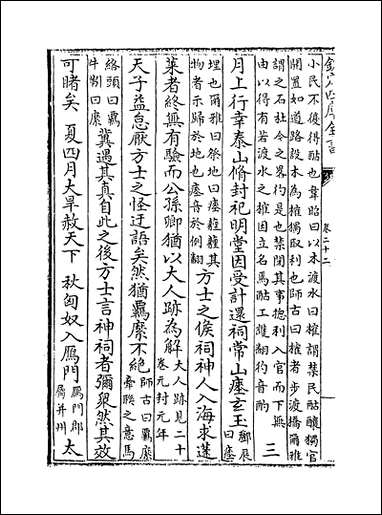 欽定四庫全書 卷二十二
小民不復得酤也韋昭曰以木渡水曰榷謂禁民酤釀獨官
開置如道路設木為榷獨取利也師古曰榷者步渡橋爾雅
謂之石杠今之略彴是也禁閉其事總利入官而下無
由以得有若渡水之榷因立名焉酤工護翻彴音酌 三
月上行幸泰山脩封祀明堂因受計還祠常山瘞玄玉鄭展曰瘞
埋也爾雅曰祭地曰瘞薶其物者示歸於地也瘞音於例翻 方士之候祠神人入海求蓬
萊者終無有驗而公孫卿猶以大人跡為解大人跡見二十卷元封元年
天子益怠厭方士之怪迂語矣然猶羈縻不絶師古曰羈縻牽聯之意馬
絡頭曰羈牛靷曰縻冀遇其真自此之後方士言神祠者彌衆然其效
可睹矣 夏四月大旱赦天下 秋匈奴入鴈門鴈門郡屬并州 太